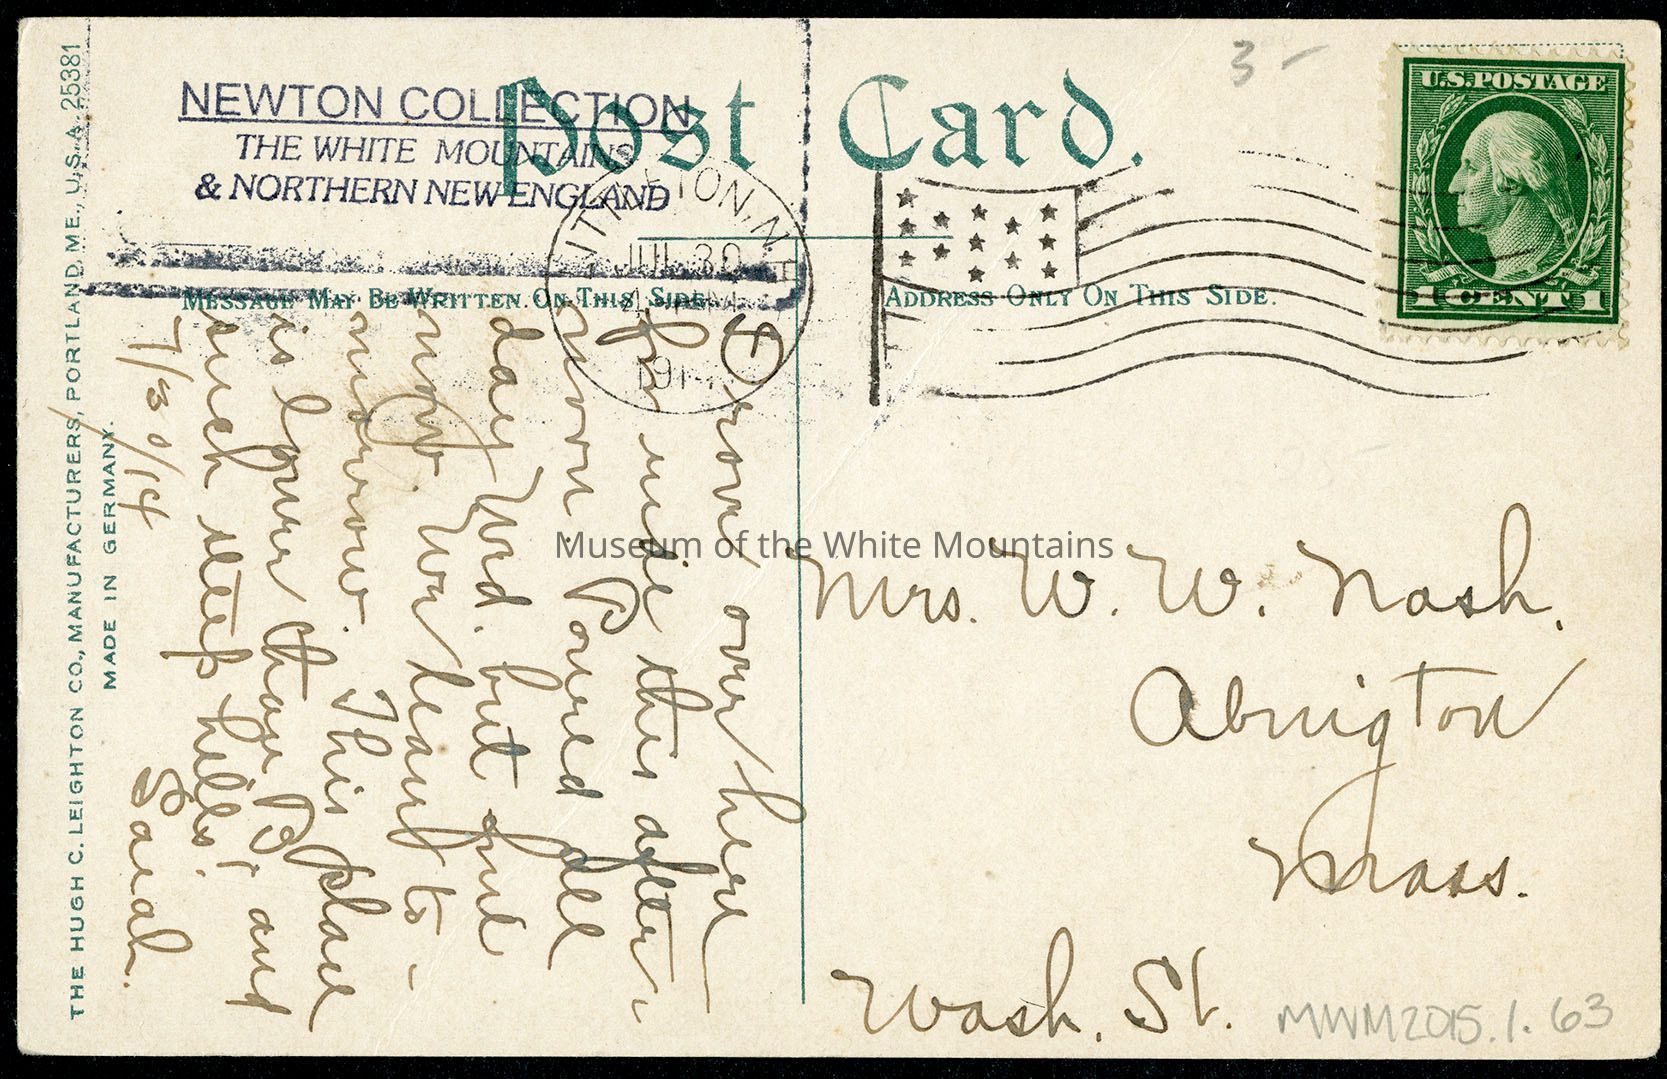 THE HUGH C. LEIGHTON CO., MANUFACTURERS, PORTLAND, ME., U.S.A. 25381
MADE IN GERMANY.
NEWTON COLLECTION
THE WHITE MOUNTAINS
& NORTHERN NEW ENGLAND
Post Card.
3 -
U.S. POSTAGE
1 CENT 1
LITTLETON, N.
JUL 30
191
MESSAGE MAY BE WRITTEN ON THIS SIDE
ADDRESS ONLY ON THIS SIDE.
over here
for ride this after-
noon. Poured all
day Wed. but fine
now. We leave to-
morrow. This place
is lower than B. and
such steep hills!
7/30/14 Sarah.
Mrs. W. W. Nash.
Abington
Mass.
Wash. St.
MWM2015.1.63
Museum of the White Mountains